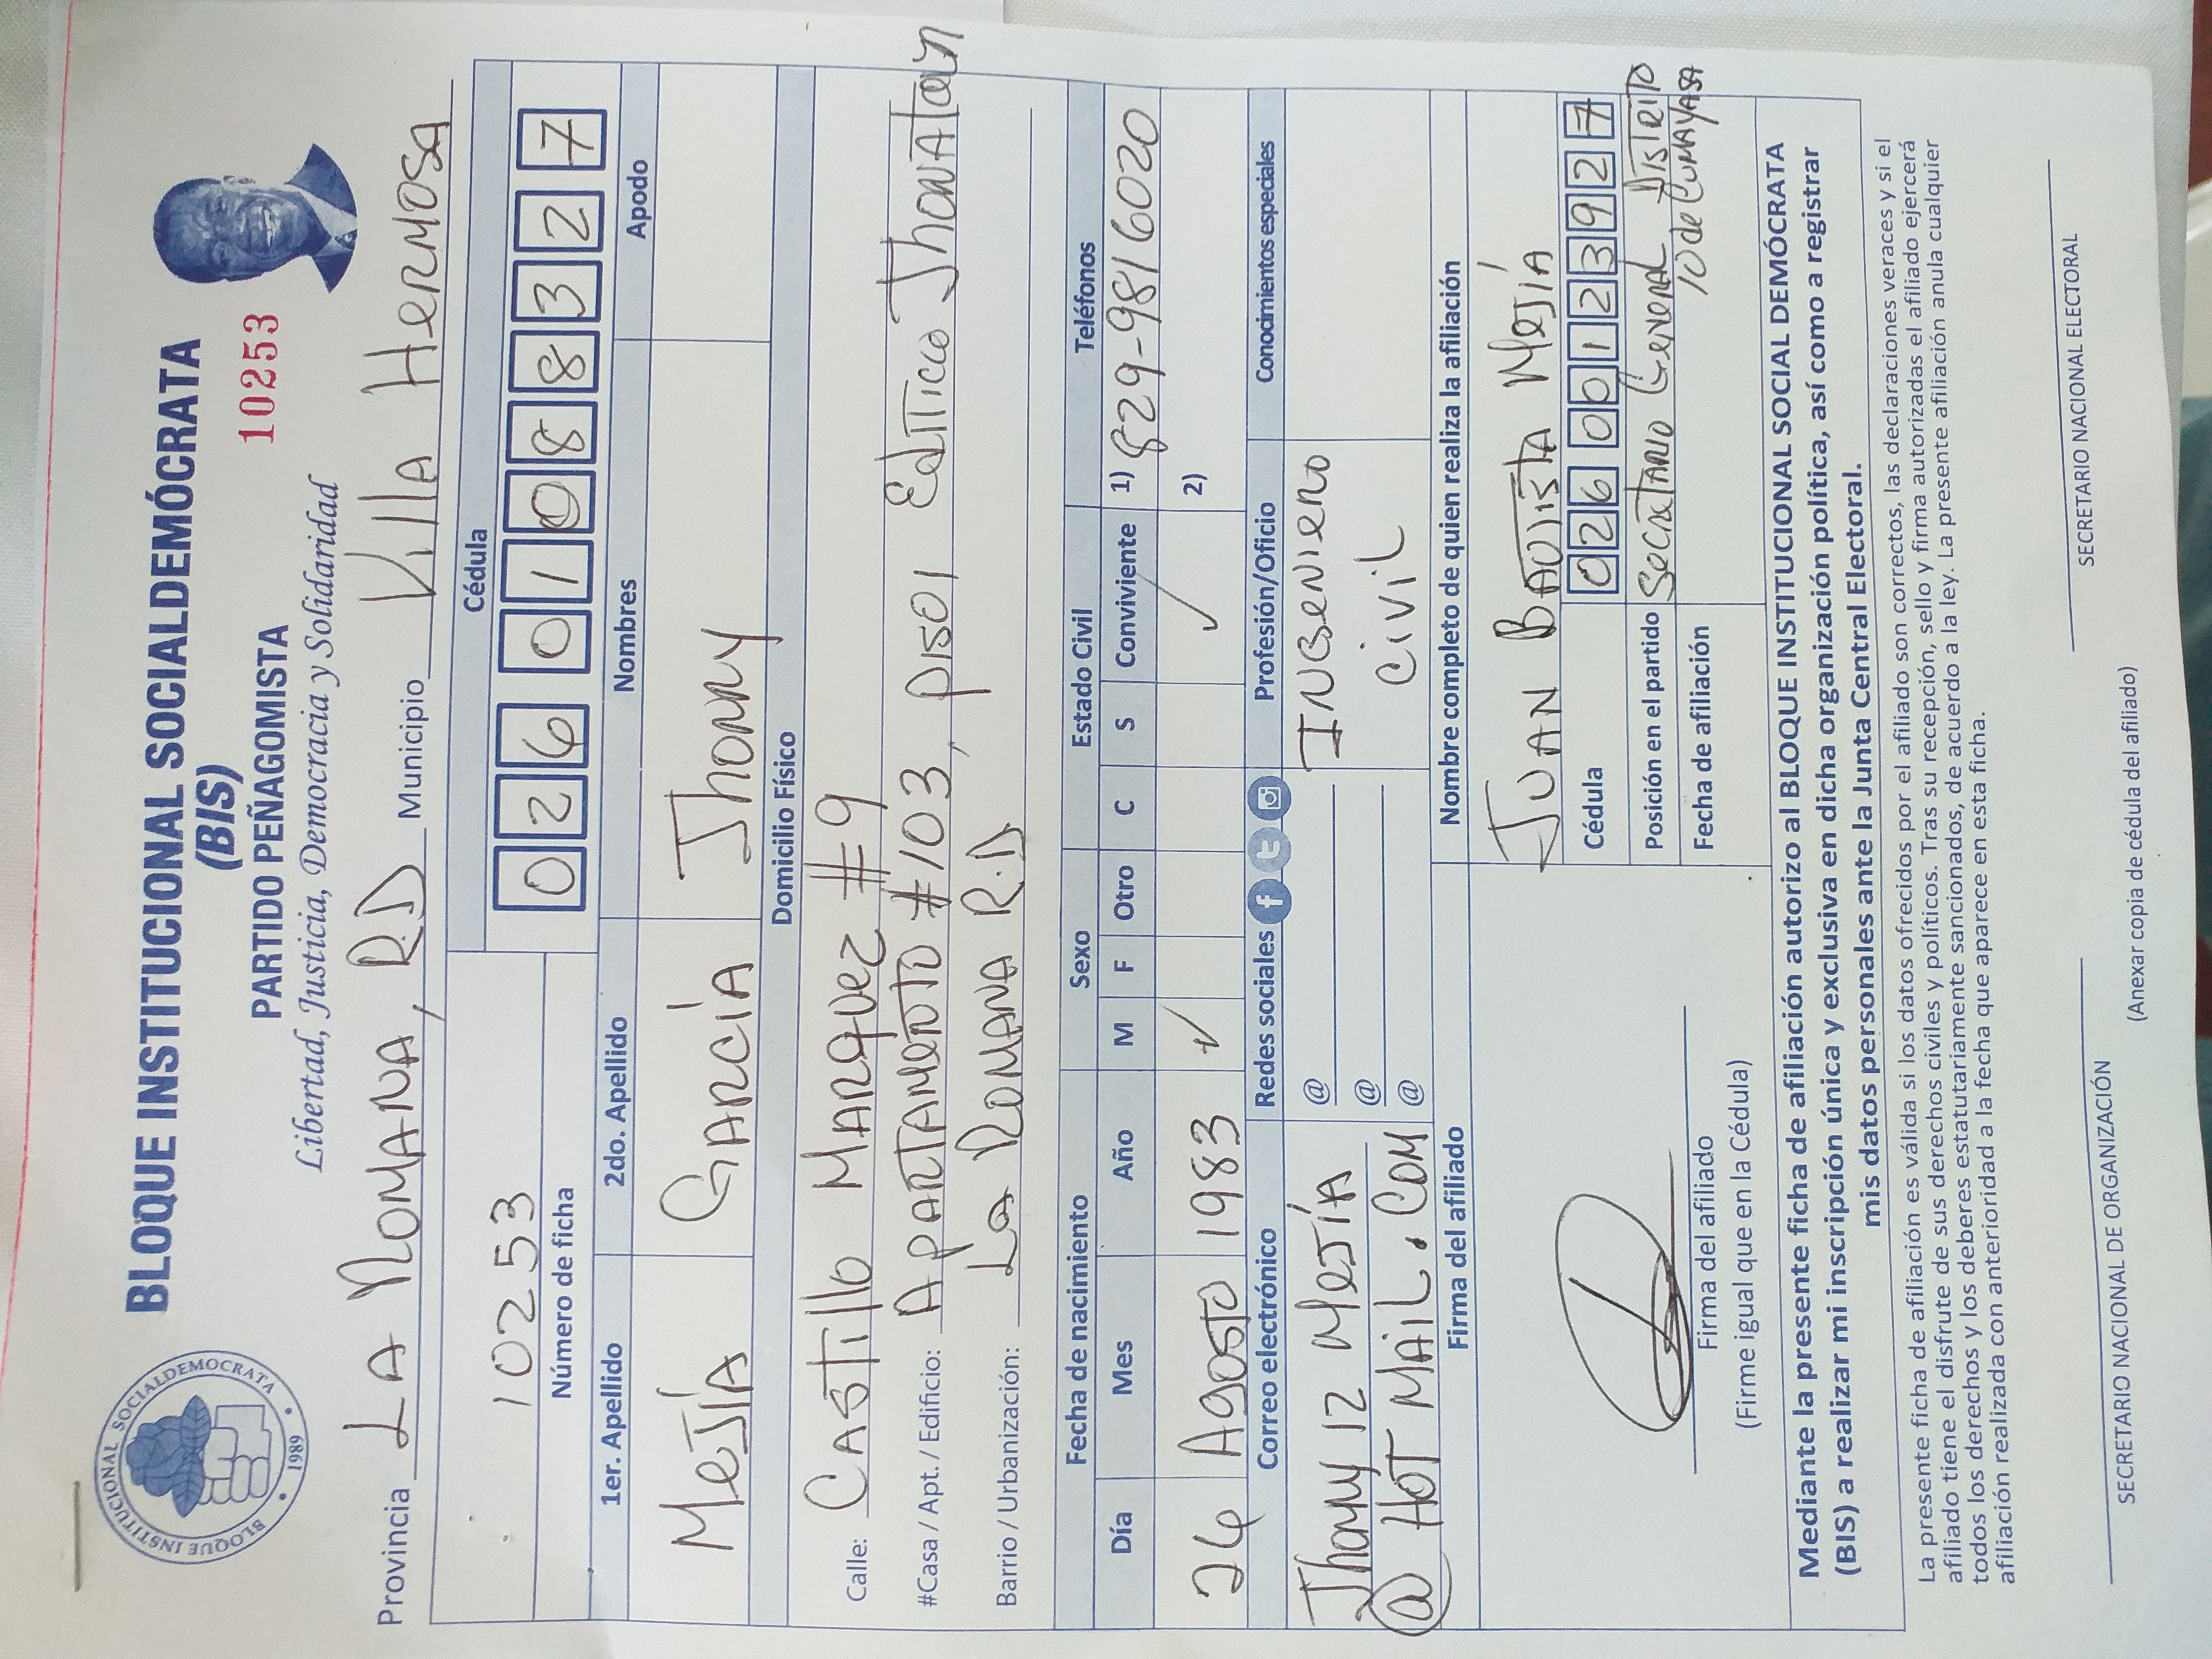 BLOQUE INSTITUCIONAL SOCIALDEMOCRATA
1989
BLOQUE INSTITUCIONAL SOCIALDEMÓCRATA
(BIS)
PARTIDO PEÑAGOMISTA
10253
Libertad, Justicia, Democracia y Solidaridad
Provincia LA ROMANA, R.D Municipio Villa Hermosa
10253
Número de ficha
Cédula
026 0108832 7
1er. Apellido 2do. Apellido Nombres Apodo
Mejía García Jhonny
Domicilio Físico
Calle: Castillo Marquez #9
#Casa / Apt. / Edificio: Apartamento #103, piso 1 Edificio Jhonatan
Barrio / Urbanización: La Romana R.D
Fecha de nacimiento Sexo Estado Civil Teléfonos
Día Mes Año M F Otro C S Conviviente 1) 829-981 6020
26 Agosto 1983 ✓ ✓ 2)
Correo electrónico Redes sociales Profesión/Oficio Conocimientos especiales
Jhonny12 Mejía
@ Hot Mail.com
@
@
@
Ingeniero
Civil
Firma del afiliado
Nombre completo de quien realiza la afiliación
Juan Bautista Mejía
Cédula 026 0012392 7
Posición en el partido Secretario General Distrito
10 de Cumayasa
Fecha de afiliación
Firma del afiliado
(Firme igual que en la Cédula)
Mediante la presente ficha de afiliación autorizo al BLOQUE INSTITUCIONAL SOCIAL DEMÓCRATA
(BIS) a realizar mi inscripción única y exclusiva en dicha organización política, así como a registrar
mis datos personales ante la Junta Central Electoral.
La presente ficha de afiliación es válida si los datos ofrecidos por el afiliado son correctos, las declaraciones veraces y si el
afiliado tiene el disfrute de sus derechos civiles y políticos. Tras su recepción, sello y firma autorizadas el afiliado ejercerá
todos los derechos y los deberes estatutariamente sancionados, de acuerdo a la ley. La presente afiliación anula cualquier
afiliación realizada con anterioridad a la fecha que aparece en esta ficha.
SECRETARIO NACIONAL DE ORGANIZACIÓN SECRETARIO NACIONAL ELECTORAL
(Anexar copia de cédula del afiliado)